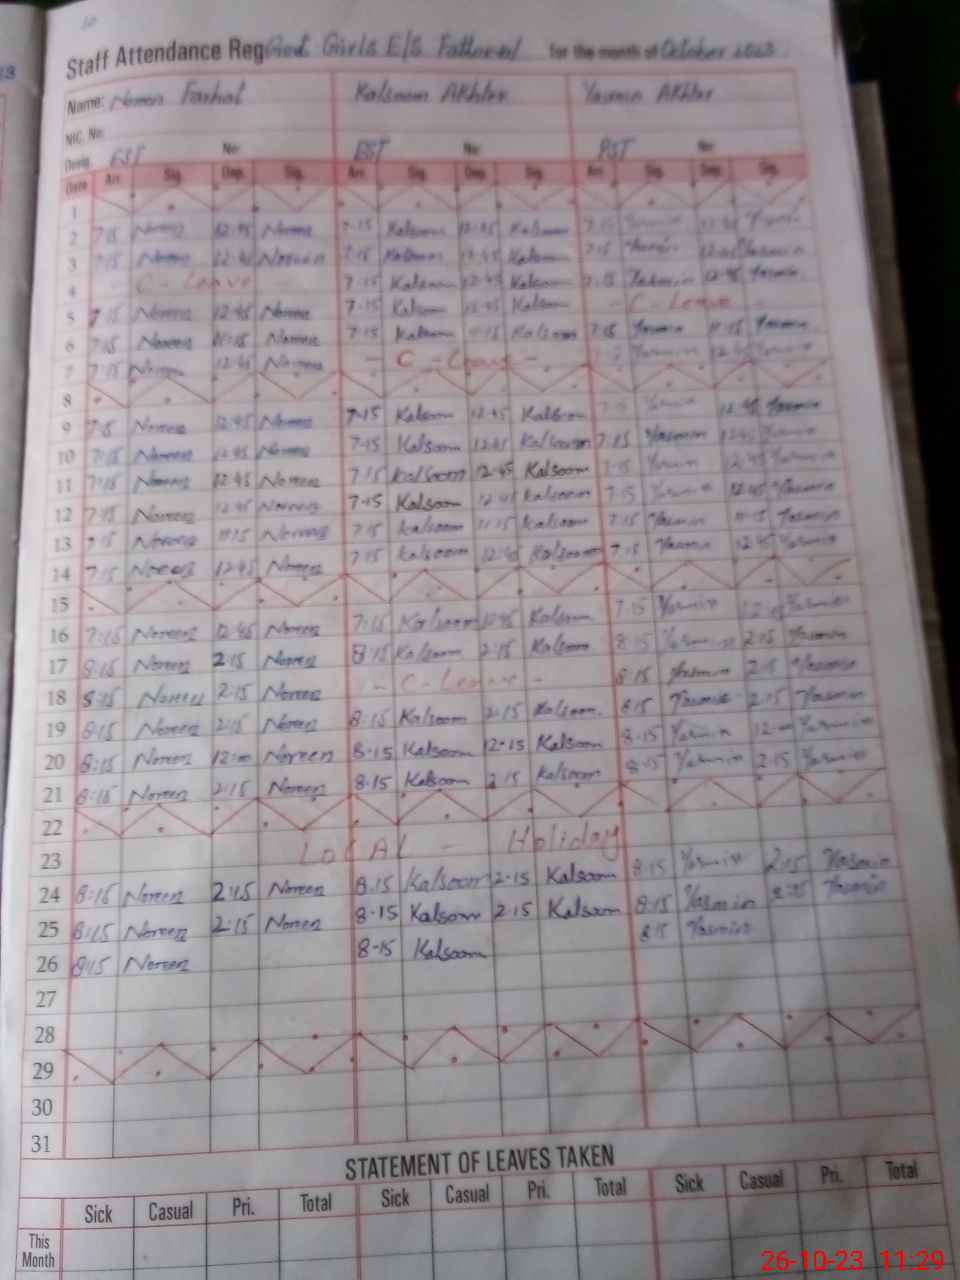 10
Staff Attendance Reg Govt Girls E/S for the month of October 2023
Name: Noreen Farhat Kalsoom Akhtar Yasmin Akhtar
NIC. No.
Desig. EST No: EST No: PST No:
Date Arr. Sig. Dep. Sig. Arr. Sig. Dep. Sig. Arr. Sig. Dep. Sig.
1
2 7-15 Noreen 12-45 Noreen 7-15 Kalsoom 12-45 Kalsoom 7-15 Yasmin 12-45 Yasmin
3 7-15 Noreen 12-45 Noreen 7-15 Kalsoom 12-45 Kalsoom 7-15 Yasmin 12-45 Yasmin
4 - C - Leave - 7-15 Kalsoom 12-45 Kalsoom 7-15 Yasmin 12-45 Yasmin
5 7-15 Noreen 12-45 Noreen 7-15 Kalsoom 12-45 Kalsoom - C - Leave -
6 7-15 Noreen 11-15 Noreen 7-15 Kalsoom 11-15 Kalsoom 7-15 Yasmin 11-15 Yasmin
7 7-15 Noreen 12-45 Noreen - C - Leave - Yasmin 12-45 Yasmin
8
9 7-15 Noreen 12-45 Noreen 7-15 Kalsoom 12-45 Kalsoom 7-15 Yasmin 12-45 Yasmin
10 7-15 Noreen 12-45 Noreen 7-15 Kalsoom 12-45 Kalsoom 7-15 Yasmin 12-45 Yasmin
11 7-15 Noreen 12-45 Noreen 7-15 Kalsoom 12-45 Kalsoom 7-15 Yasmin 12-45 Yasmin
12 7-15 Noreen 12-45 Noreen 7-15 Kalsoom 12-45 Kalsoom 7-15 Yasmin 12-45 Yasmin
13 7-15 Noreen 11-15 Noreen 7-15 Kalsoom 11-15 Kalsoom 7-15 Yasmin 11-15 Yasmin
14 7-15 Noreen 12-45 Noreen 7-15 Kalsoom 12-45 Kalsoom 7-15 Yasmin 12-45 Yasmin
15
16 7-15 Noreen 12-45 Noreen 7-15 Kalsoom 12-45 Kalsoom 7-15 Yasmin Yasmin
17 8-15 Noreen 2-15 Noreen 8-15 Kalsoom 2-15 Kalsoom 8-15 Yasmin 2-15 Yasmin
18 8-15 Noreen 2-15 Noreen - C - Leave - 8-15 Yasmin 2-15 Yasmin
19 8-15 Noreen 2-15 Noreen 8-15 Kalsoom 2-15 Kalsoom 8-15 Yasmin 2-15 Yasmin
20 8-15 Noreen 12-00 Noreen 8-15 Kalsoom 12-15 Kalsoom 8-15 Yasmin 12-00 Yasmin
21 8-15 Noreen 2-15 Noreen 8-15 Kalsoom 2-15 Kalsoom 8-15 Yasmin 2-15 Yasmin
22
23 Local - Holiday
24 8-15 Noreen 2-15 Noreen 8-15 Kalsoom 2-15 Kalsoom 8-15 Yasmin 2-15 Yasmin
25 8-15 Noreen 2-15 Noreen 8-15 Kalsoom 2-15 Kalsoom 8-15 Yasmin Yasmin
26 8-15 Noreen 8-15 Kalsoom 8-15 Yasmin
27
28
29
30
31
STATEMENT OF LEAVES TAKEN
Sick Casual Pri. Total Sick Casual Pri. Total Sick Casual Pri. Total
This Month
26-10-23 11:29